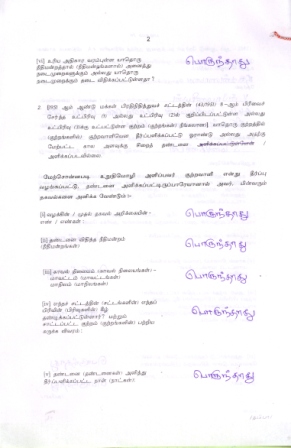 2
(vi) உரிய அதிகார வரம்புள்ள யாதொரு
நீதிமன்றத்தால் (நீதிமன்றங்களால்) அனைத்து
நடைமுறைகளுக்கும் அல்லது யாதொரு
நடைமுறைக்கும் தடை விதிக்கப்பட்டுள்ளதா?
பொருந்தாது
2. 1951 ஆம் ஆண்டு மக்கள் பிரதிநிதித்துவச் சட்டத்தின் (43/1951) 8-ஆம் பிரிவைச்
சேர்ந்த உட்பிரிவு (1) அல்லது உட்பிரிவு (2)ல் குறிப்பிடப்பட்டுள்ள அல்லது
உட்பிரிவு (3)க்கு உட்பட்டுள்ள குற்றம் (குற்றங்கள்) நீங்கலாக) யாதொரு குற்றத்தில்
(குற்றங்களில்) குற்றவாளியென தீர்ப்பளிக்கப்பட்டு ஓராண்டு அல்லது அதற்கு
மேற்பட்ட கால அளவுக்கு சிறைத் தண்டனை அளிக்கப்பட்டுள்ளேன் /
அளிக்கப்படவில்லை
மேற்சொன்னபடி உறுதிமொழி அளிப்பவர் குற்றவாளி என்று தீர்ப்பு
வழங்கப்பட்டு, தண்டனை அளிக்கப்பட்டிருப்பாரேயானால் அவர், பின்வரும்
தகவல்களை அளிக்க வேண்டும்:-
(i) வழக்கின் / முதல் தகவல் அறிக்கையின் -
எண் / எண்கள் :
பொருந்தாது
(ii) தண்டனை விதித்த நீதிமன்றம்
(நீதிமன்றங்கள்)
பொருந்தாது
(iii) காவல் நிலையம் (காவல் நிலையங்கள்) -
மாவட்டம் (மாவட்டங்கள்)
மாநிலம் (மாநிலங்கள்)
பொருந்தாது
(iv) எந்தச் சட்டத்தின் (சட்டங்களின்) எந்தப்
பிரிவின் (பிரிவுகளின்) கீழ்
தண்டிக்கப்பட்டுள்ளார்? மற்றும்
சாட்டப்பட்ட குற்றம் (குற்றங்களின்) பற்றிய
சுருக்க விவரம் :
பொருந்தாது
(v) தண்டனை (தண்டனைகள்) அளித்து
தீர்ப்பளிக்கப்பட்ட நாள் (நாட்கள்)
பொருந்தாது